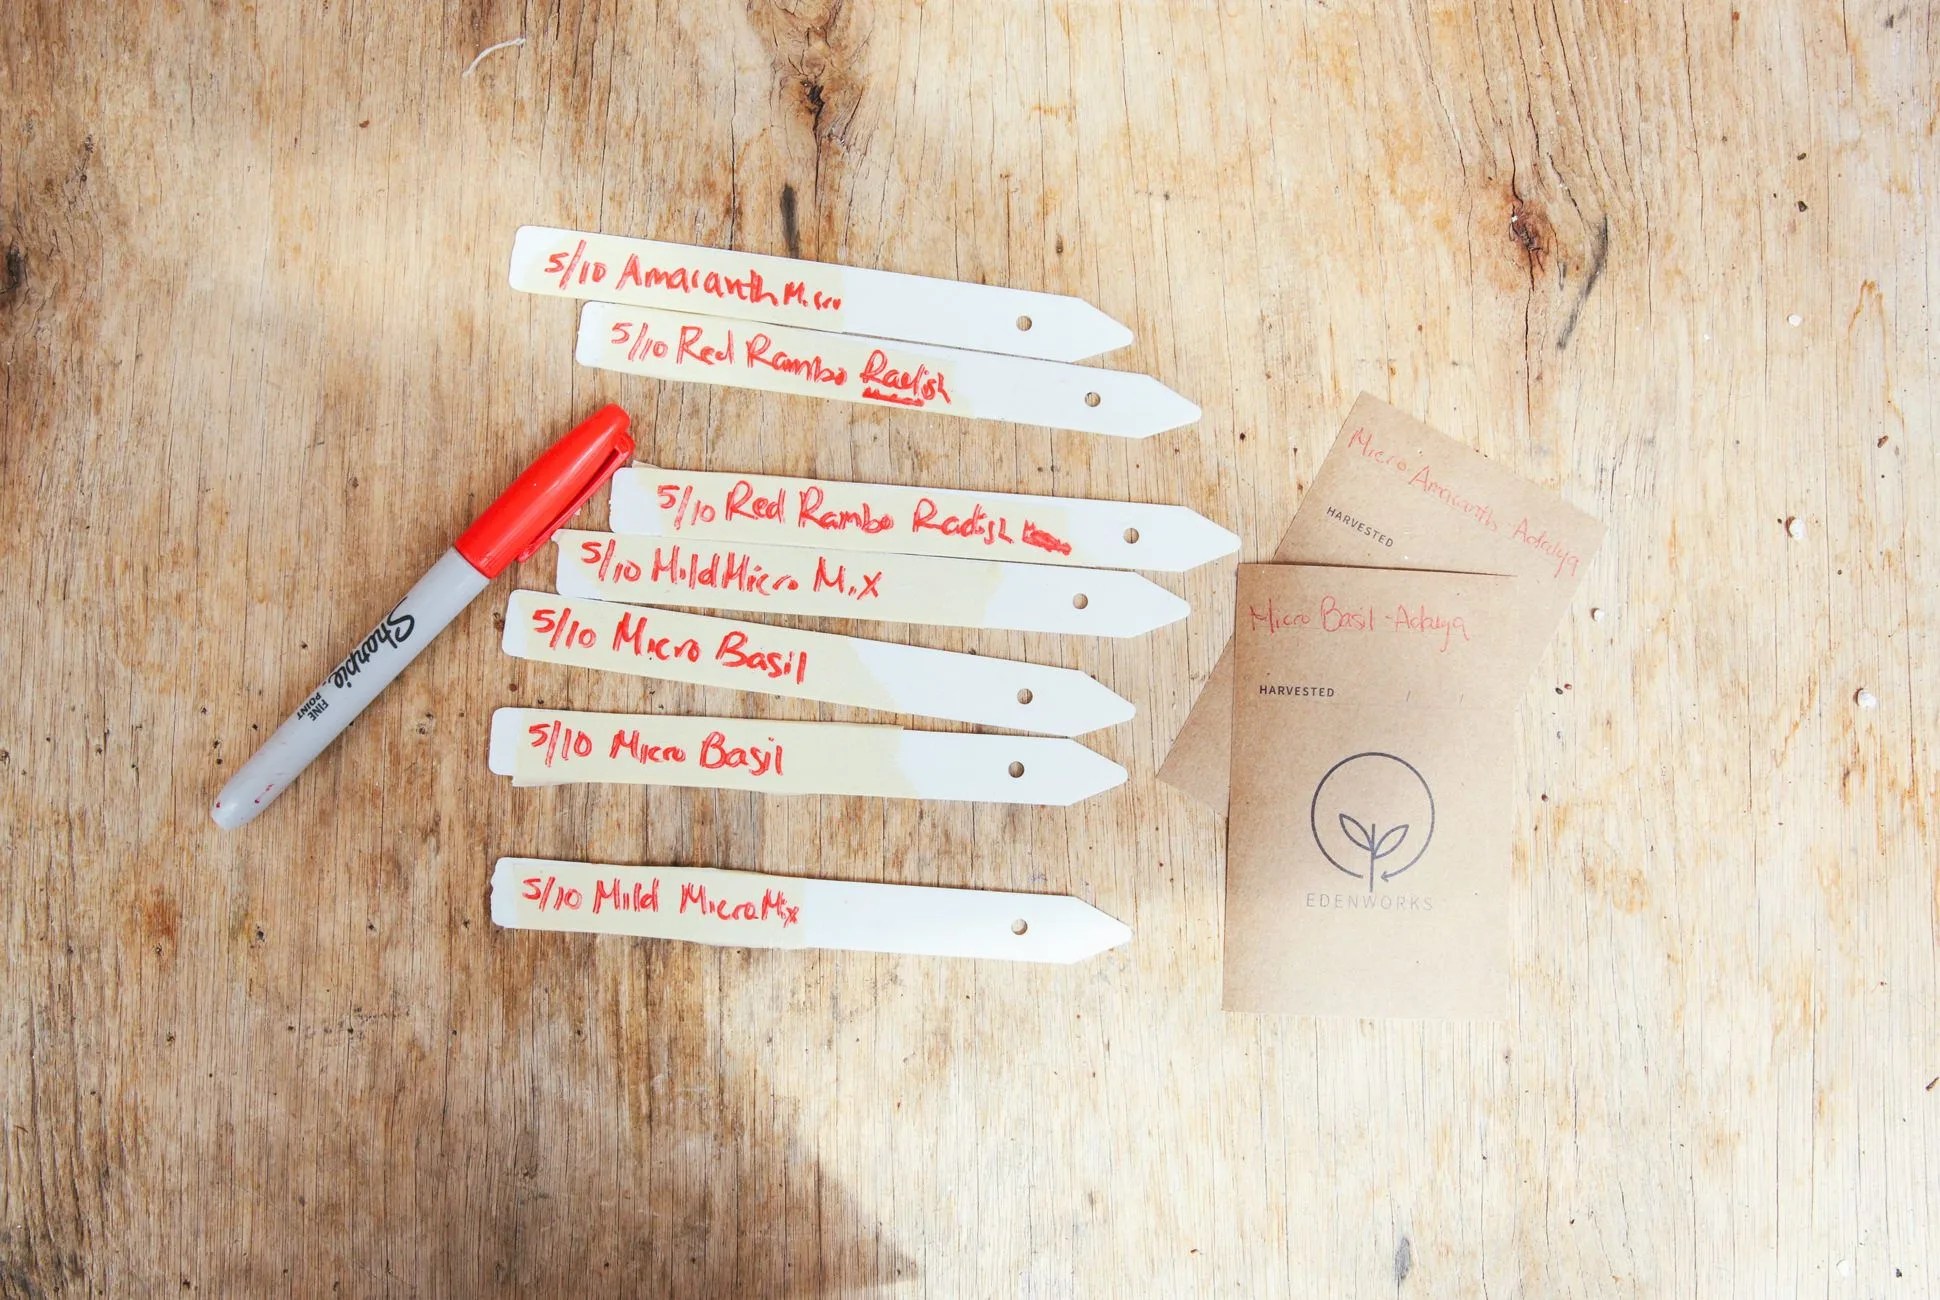 5/10 Amaranth Micro
5/10 Red Rambo Radish
5/10 Red Rambo Radish
5/10 Mild Micro Mix
5/10 Micro Basil
5/10 Micro Basil
5/10 Mild Micro Mix
Sharpie
FINE
POINT
Micro Amaranth-
HARVESTED
Micro Basil -
HARVESTED / /
EDENWORKS